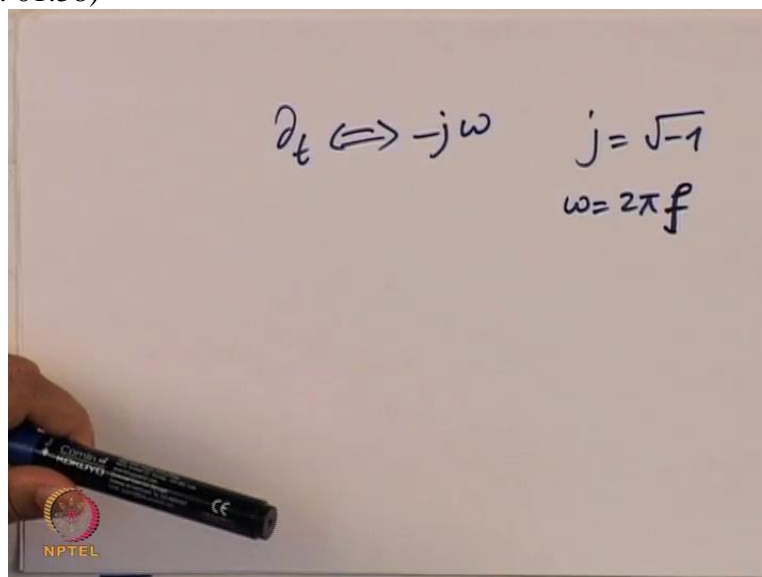 ∂t ⟺ -jω   j = √-1
ω = 2πf
Camlin
KOKUYO
CE
NPTEL